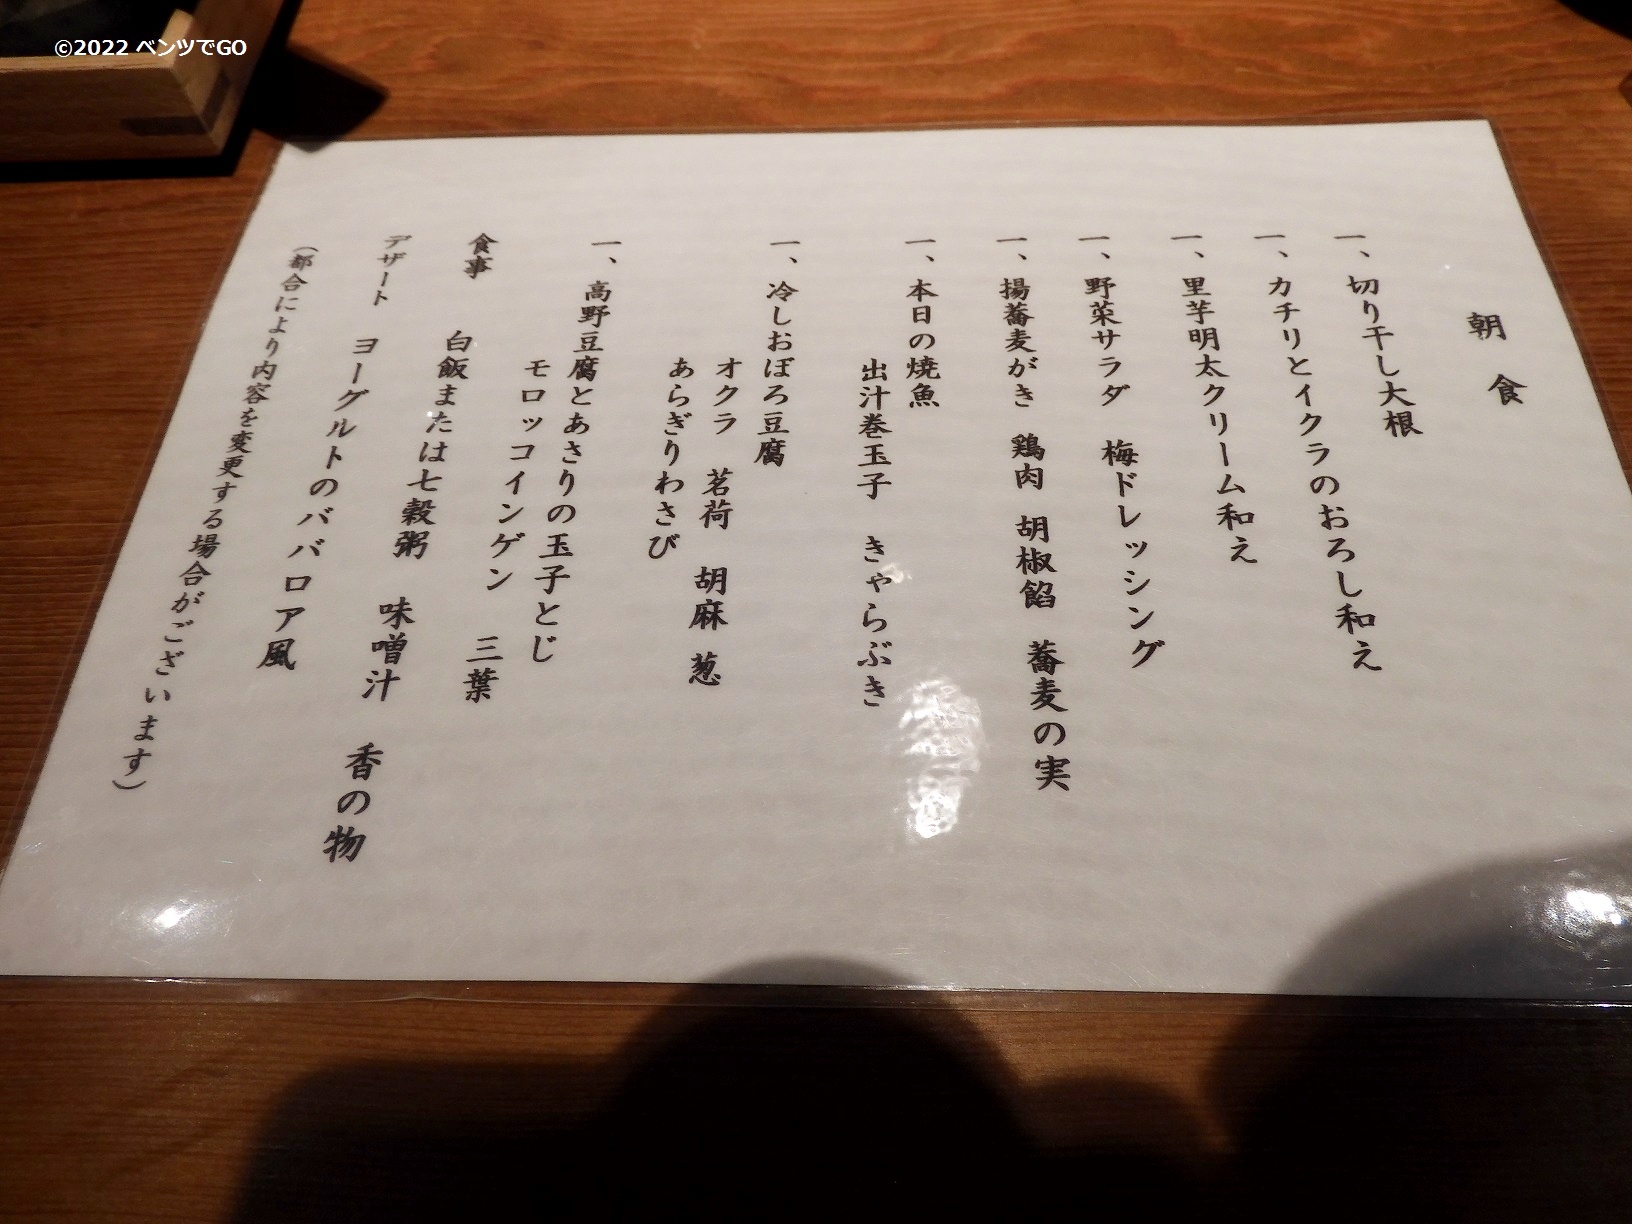 ©2022 ベンツでGO
朝 食
一、切り干し大根
一、カチリとイクラのおろし和え
一、里芋明太クリーム和え
一、野菜サラダ 梅ドレッシング
一、揚蕎麦がき 鶏肉 胡椒餡 蕎麦の実
一、本日の焼魚
出汁巻玉子 きゃらぶき
一、冷しおぼろ豆腐
オクラ 茗荷 胡麻 葱
あらぎりわさび
一、高野豆腐とあさりの玉子とじ
モロッコインゲン 三葉
食事 白飯または七穀粥 味噌汁 香の物
デザート ヨーグルトのババロア風
（都合により内容を変更する場合がございます）